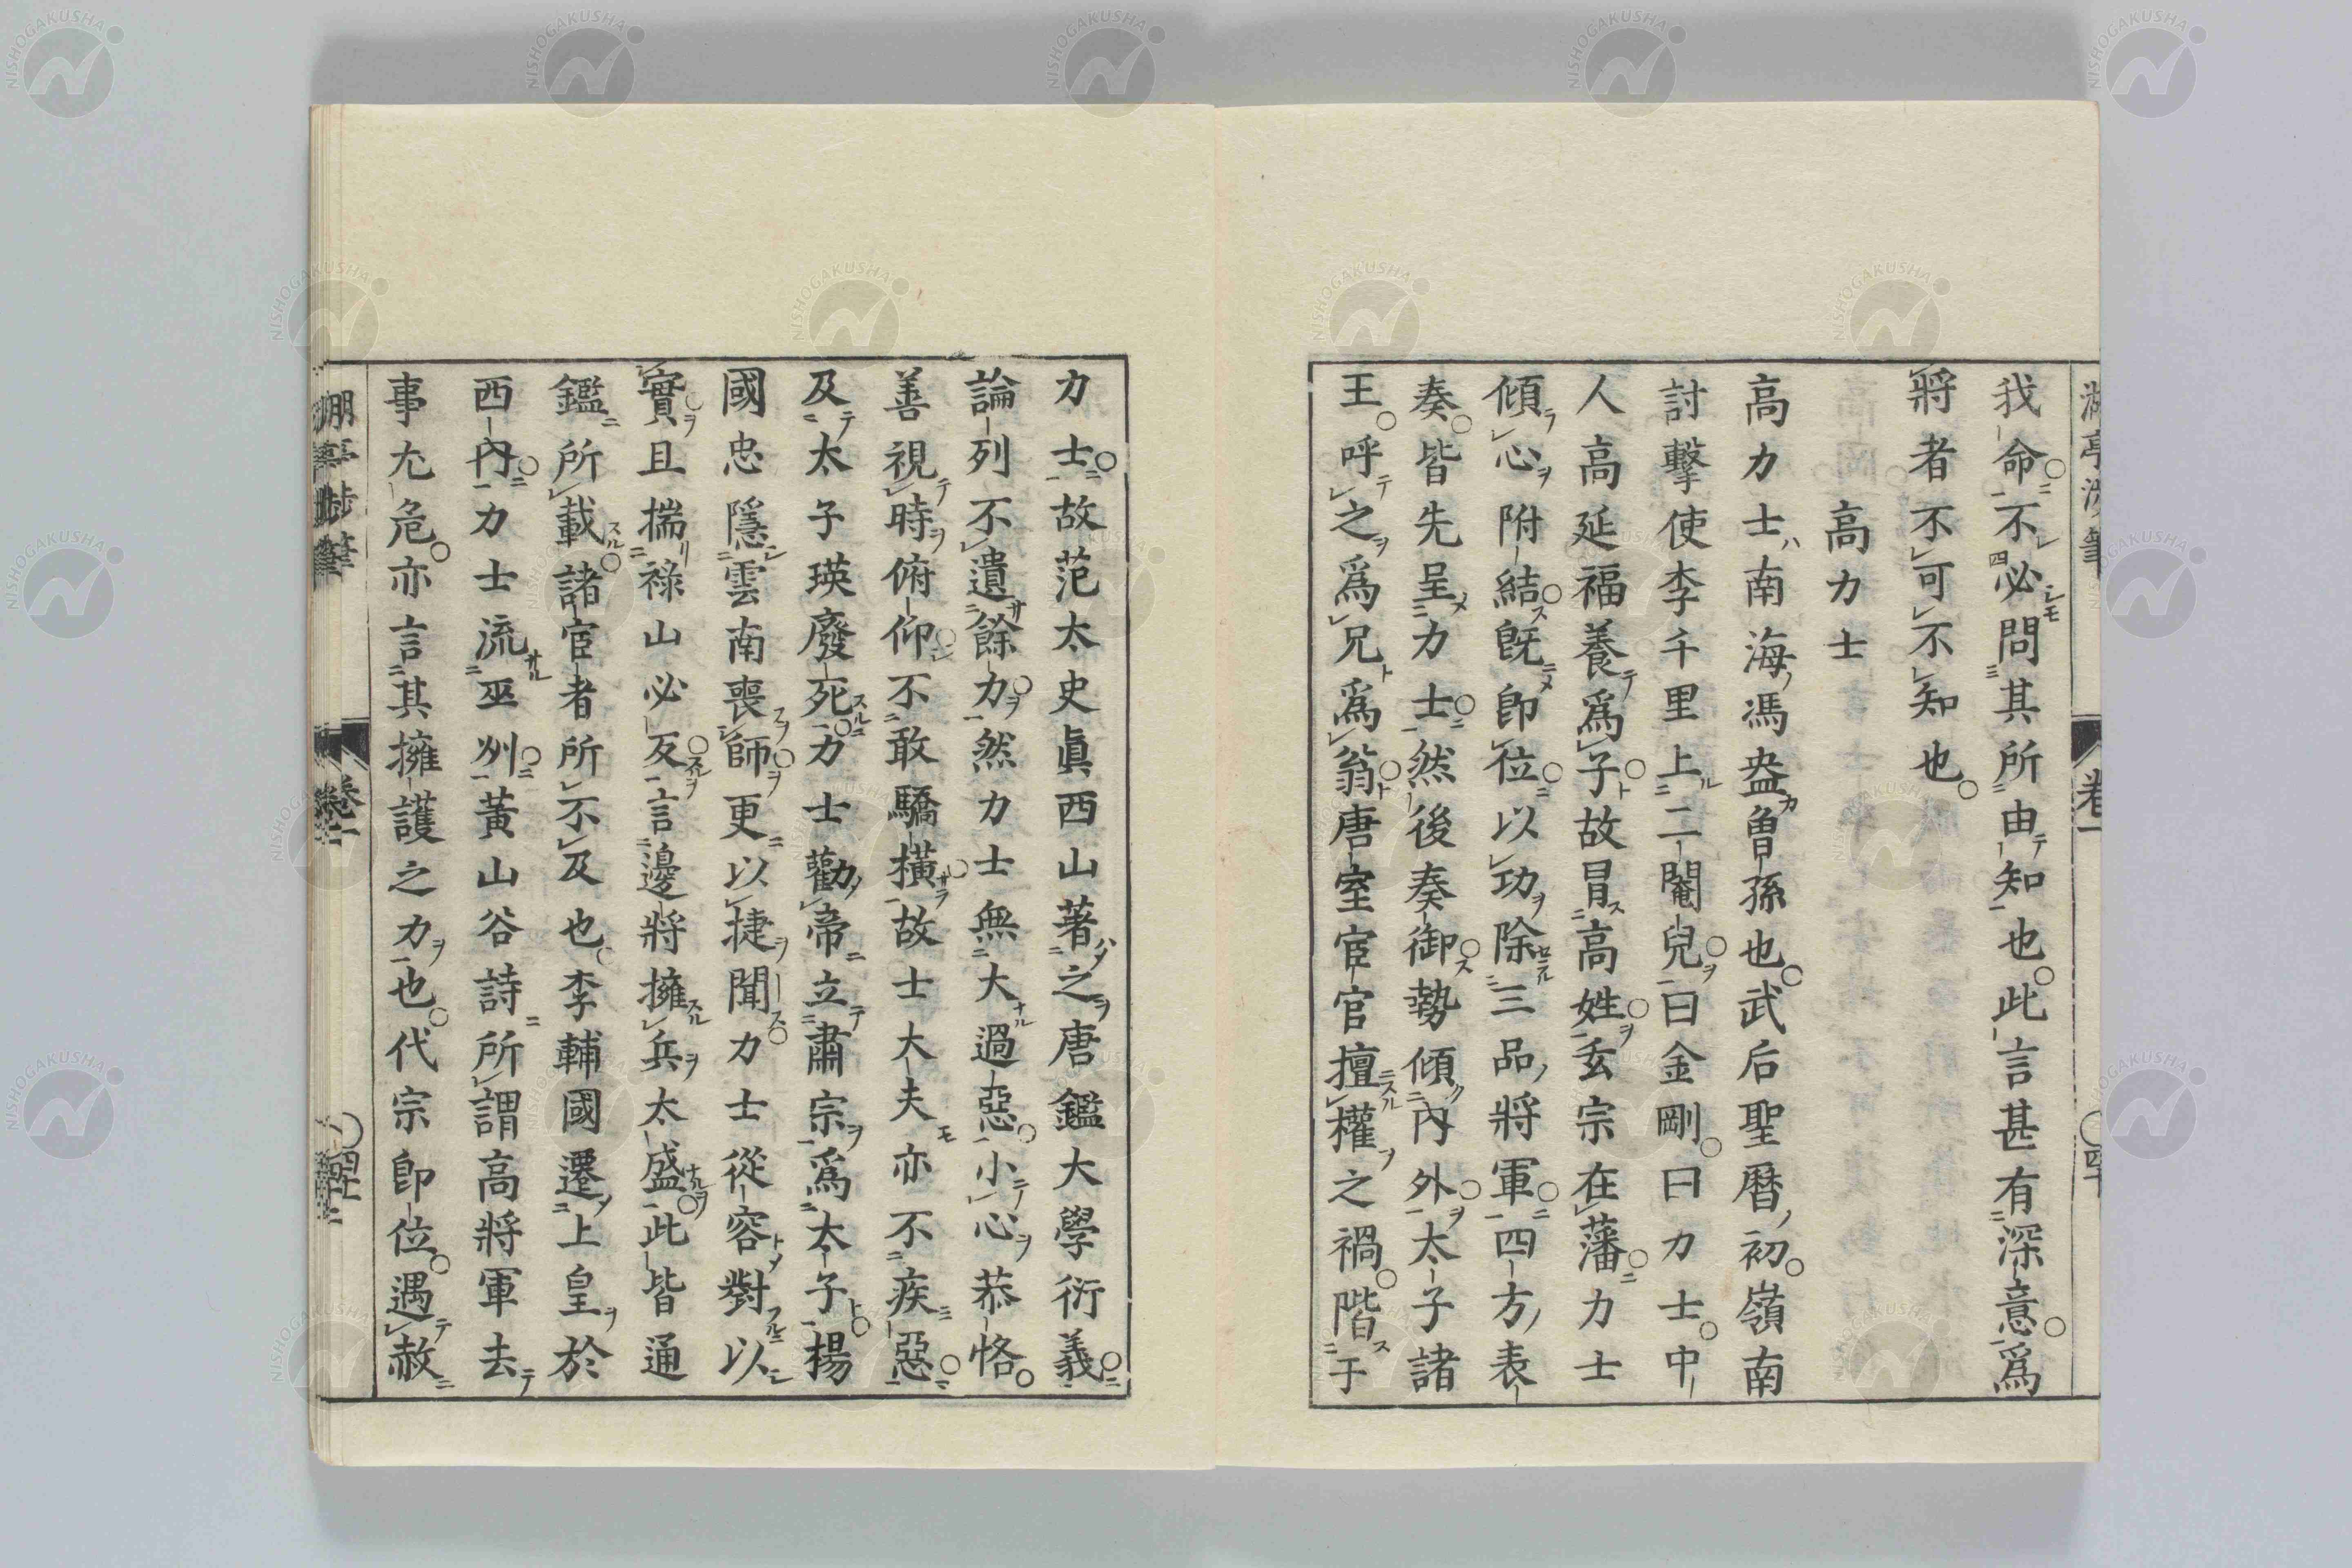 我命不必問其所由知也此言甚有深意爲
將者不可不知也
高力士
高力士南海馮盎曾孫也武后聖曆初嶺南
討擊使李千里上二閹兒曰金剛曰力士中
人高延福養爲子故冒高姓玄宗在藩力士
傾心附結既即位以功除三品將軍四方表
奏皆先呈力士然後奏御勢傾內外太子諸
王呼之爲兄爲翁唐室宦官擅權之禍階于
力士故范太史眞西山著之唐鑑大學衍義
論列不遺餘力然力士無大過惡小心恭恪
善視時俯仰不敢驕橫故士大夫亦不疾惡
及太子瑛廢死力士勸帝立肅宗爲太子楊
國忠隱雲南喪師更以捷聞力士從容對以
實且揣祿山必反言邊將擁兵太盛此皆通
鑑所載諸宦者所不及也李輔國遷上皇於
西內力士流巫州黃山谷詩所謂高將軍去
事尤危亦言其擁護之力也代宗即位遇赦
卷一
NISHOGAKUSHA